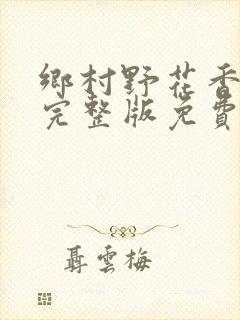 鄉村野花香
完整版免費
聶雲梅